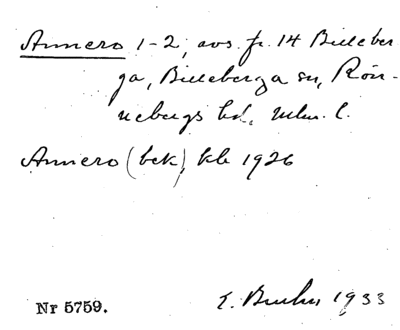 Annero 1-2, avs. fr. 14 Billeber
ga, Billeberga sn, Rön-
nebergs hd, Mlm. l.
Annero (bek), kb 1926
Nr 5759.
E. Bruhn 1933